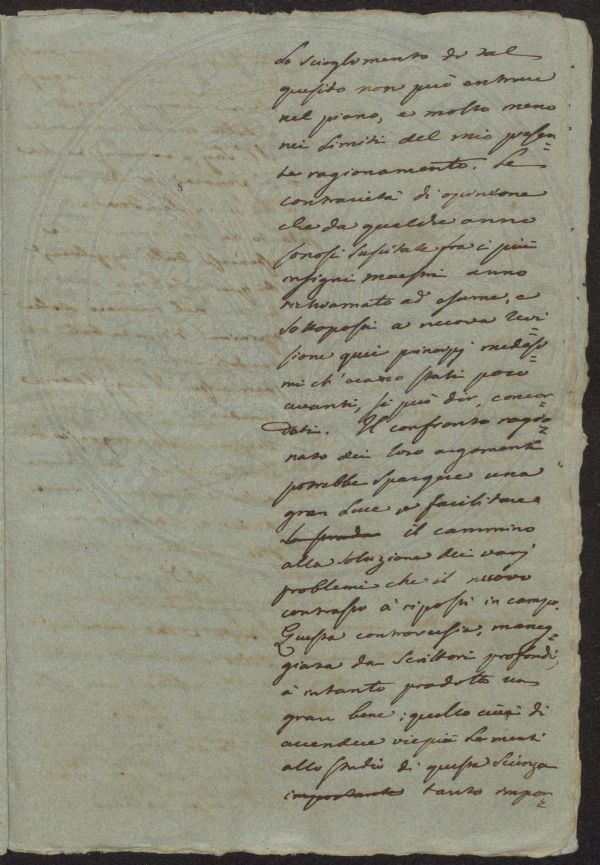 Lo scioglimento di tal
quesito non può entrare
nel piano, e molto meno
nei limiti del mio presen=
te ragionamento. Le
contrarietà di opinione
che da qualche anno
sonosi suscitate fra i più
insigni maestri anno
richiamato ad esame, e
sottoposti a nuova revi=
sione quei principj medesi=
mi ch'erano stati poco
avanti, si può dir, concor=
dati. Il confronto ragio=
nato dei loro argomenti
potrebbe spargere una
gran luce e facilitare
la strada il cammino
alla soluzione dei varj
problemi che il nuovo
contrasto à riposti in campo.
Questa controversia, maneg=
giata da scrittori profondi,
à intanto prodotto un
gran bene; quello cioè di
accendere viepiù le menti
allo studio di questa scienza
importante tanto impor=